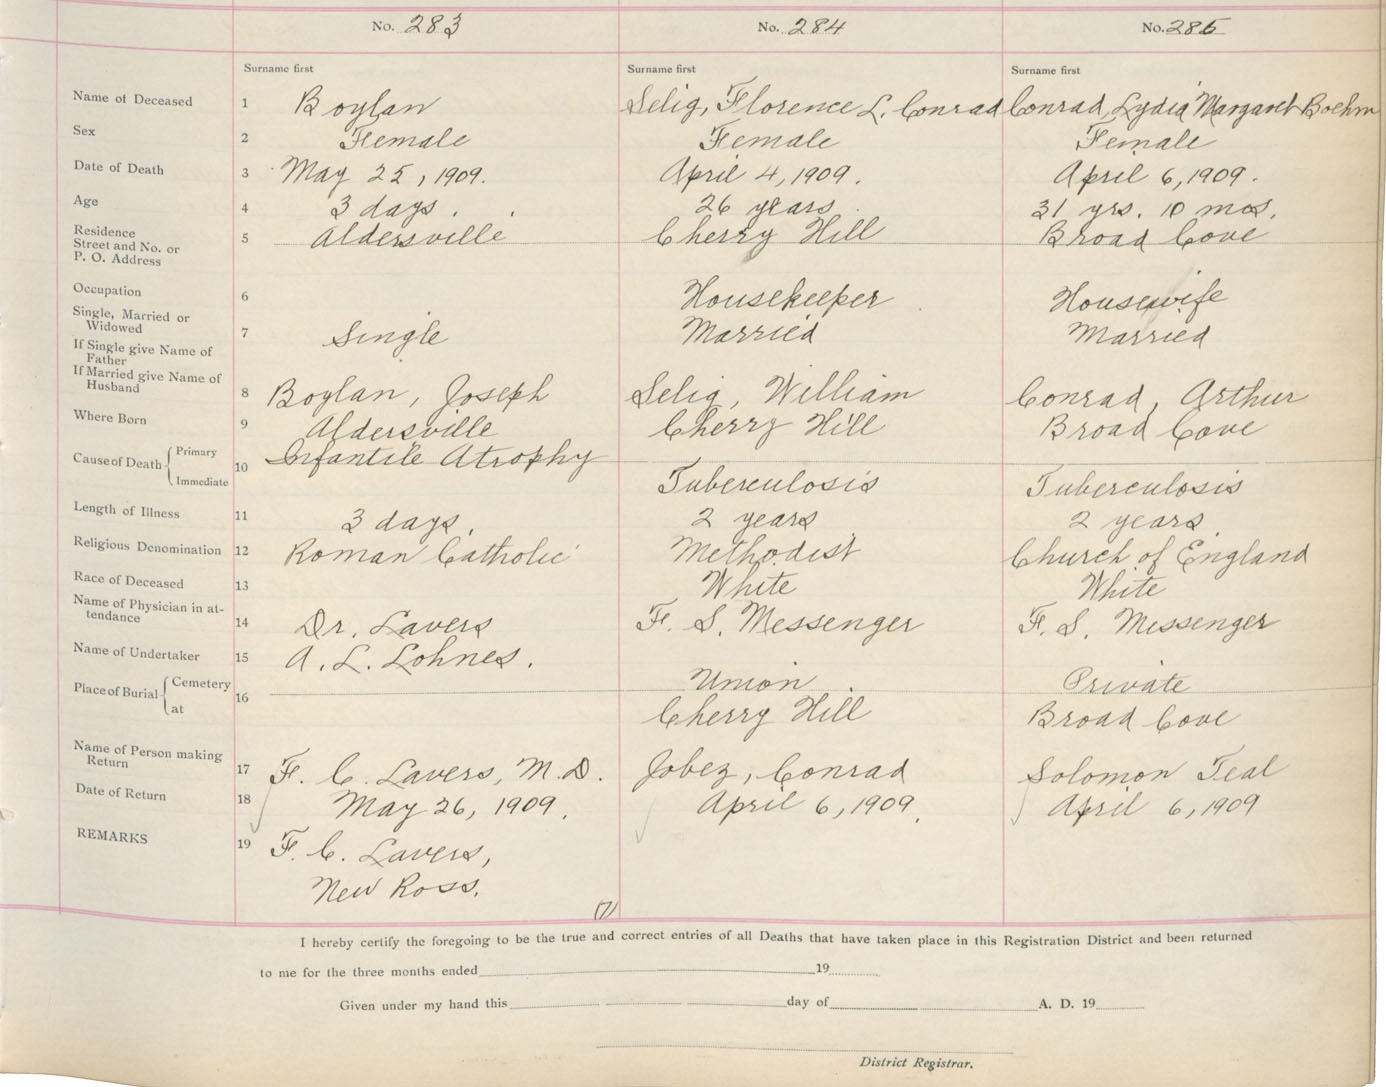 No. 283 No. 284 No. 285
Surname first Surname first Surname first
Name of Deceased 1 Boylan Selig, Florence L. Conrad Conrad, Lydia Margaret Boehm
Sex 2 Female Female Female
Date of Death 3 May 25, 1909. April 4, 1909. April 6, 1909.
Age 4 3 days. 26 years 31 yrs. 10 mos.
Residence
Street and No. or
P. O. Address 5 Aldersville Cherry Hill Broad Cove
Occupation 6 Housekeeper Housewife
Single, Married or
Widowed 7 Single Married Married
If Single give Name of
Father
If Married give Name of
Husband 8 Boylan, Joseph Selig, William Conrad, Arthur
Where Born 9 Aldersville Cherry Hill Broad Cove
Cause of Death Primary Infantile Atrophy
Immediate 10 Tuberculosis Tuberculosis
Length of Illness 11 3 days. 2 years 2 years
Religious Denomination 12 Roman Catholic Methodist Church of England
Race of Deceased 13 White White
Name of Physician in at-
tendance 14 Dr. Lavers F. S. Messenger F. S. Messenger
Name of Undertaker 15 A. L. Lohnes.
Place of Burial Cemetery 16 Union Private
at Cherry Hill Broad Cove
Name of Person making
Return 17 F. C. Lavers, M.D. Jobez, Conrad Solomon Teal
Date of Return 18 May 26, 1909. April 6, 1909. April 6, 1909
REMARKS 19 F. C. Lavers,
New Ross.
I hereby certify the foregoing to be the true and correct entries of all Deaths that have taken place in this Registration District and been returned
to me for the three months ended 19
Given under my hand this day of A. D. 19
District Registrar.